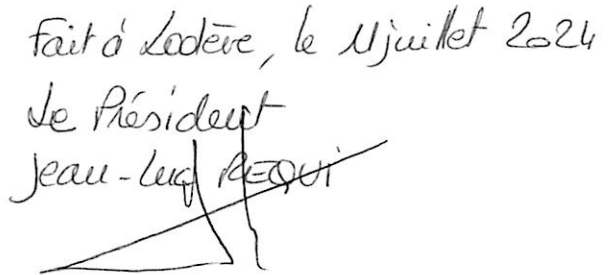 Fait à Lodève, le 11 juillet 2024
Le Président
Jean-Luc REQUI